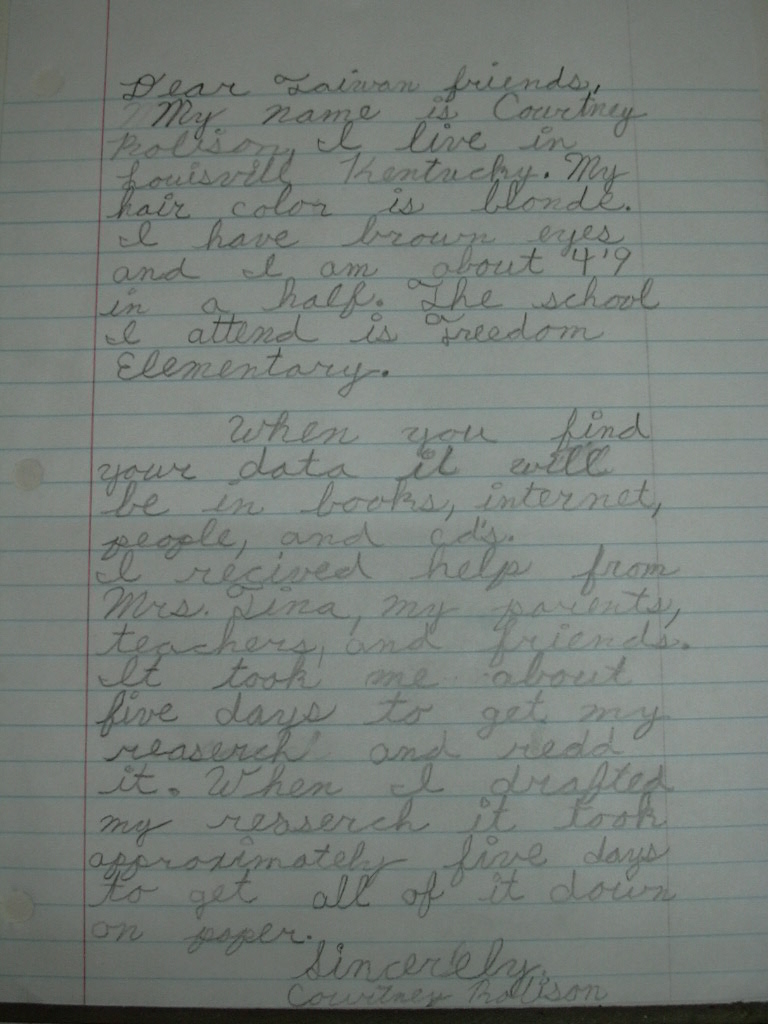 Dear Taiwan friends,
My name is Courtney
Rolison, I live in
Louisvill Kentucky. My
hair color is blonde.
I have brown eyes
and I am about 4'9
in a half. The school
I attend is Freedom
Elementary.
When you find
your data it will
be in books, internet,
people, and cd's.
I recived help from
Mrs. Tina, my parents,
teachers, and friends.
It took me about
five days to get my
reaserch and redd
it. When I drafted
my resserch it took
approximately five days
to get all of it down
on paper.
Sincerely,
Courtney Rolison